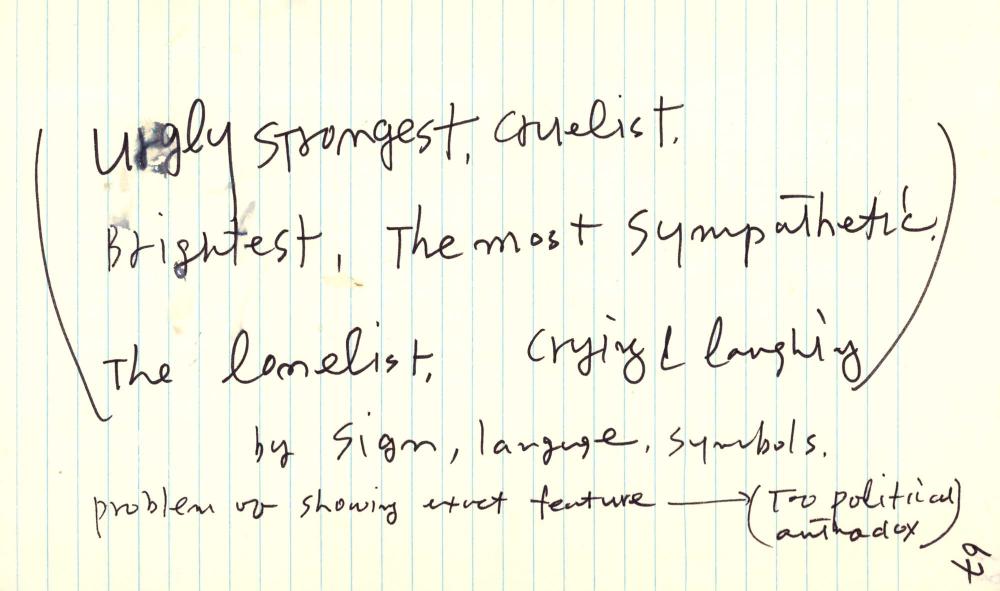 Urgly strongest, cruelist.
Brightest, The most sympathetic.
The lonelist, crying & laughing
by sign, languge, symbols.
problem of showing exact feature → (Too political
anthodox)
67